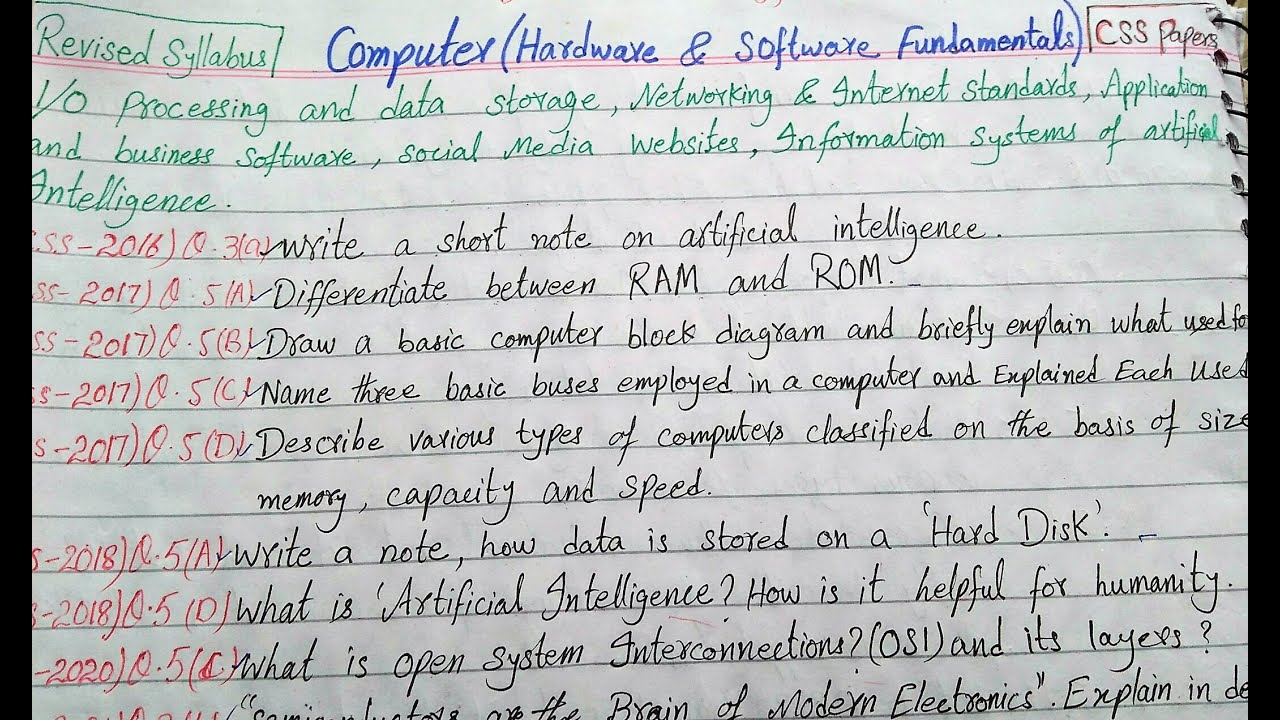 Revised Syllabus Computer (Hardware & Software Fundamentals) CSS Papers
I/O Processing and data storage, Networking & Internet Standards, Application
and business software, social Media Websites, Information Systems of artificial
Intelligence.
CSS-2016) Q.3(a) Write a short note on artificial intelligence.
SS-2017) Q.5(A) Differentiate between RAM and ROM.
SS-2017) Q.5(B) Draw a basic computer block diagram and briefly explain what used fo
SS-2017) Q.5(C) Name three basic buses employed in a computer and Explained Each Used
S-2017) Q.5(D) Describe various types of computers classified on the basis of size
memory, capacity and speed.
S-2018) Q.5(A) Write a note, how data is stored on a 'Hard Disk'.
S-2018) Q.5(D) What is 'Artificial Intelligence? How is it helpful for humanity.
-2020) Q.5(C) What is open System Interconnections? (OSI) and its layers?
"Semiconductors are the Brain of Modern Electronics". Explain in de